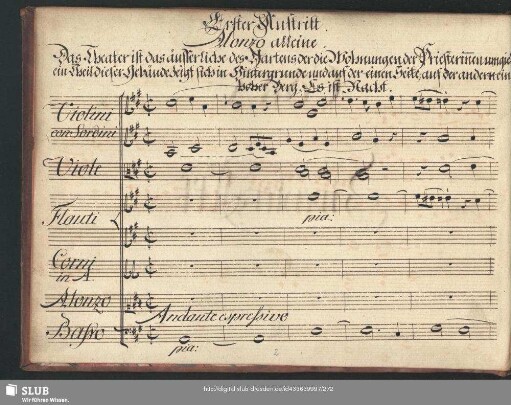 Erster Auftritt.
Alonzo alleine
Das Theater ist das äusserliche des Gartens der die Wohnungen der Priesterinnen umgie
ein Theil dieser Gebäude zeigt sich im Hintergrunde und auf der einen Seite, auf der andern ein
hoher Berg. Es ist Nacht.
Violini
con Sordini
Viole
Flauti
pia:
Corni
in A
Alonzo
Andante espressivo
Basso
pia:
2
SLUB
Wir führen Wissen.